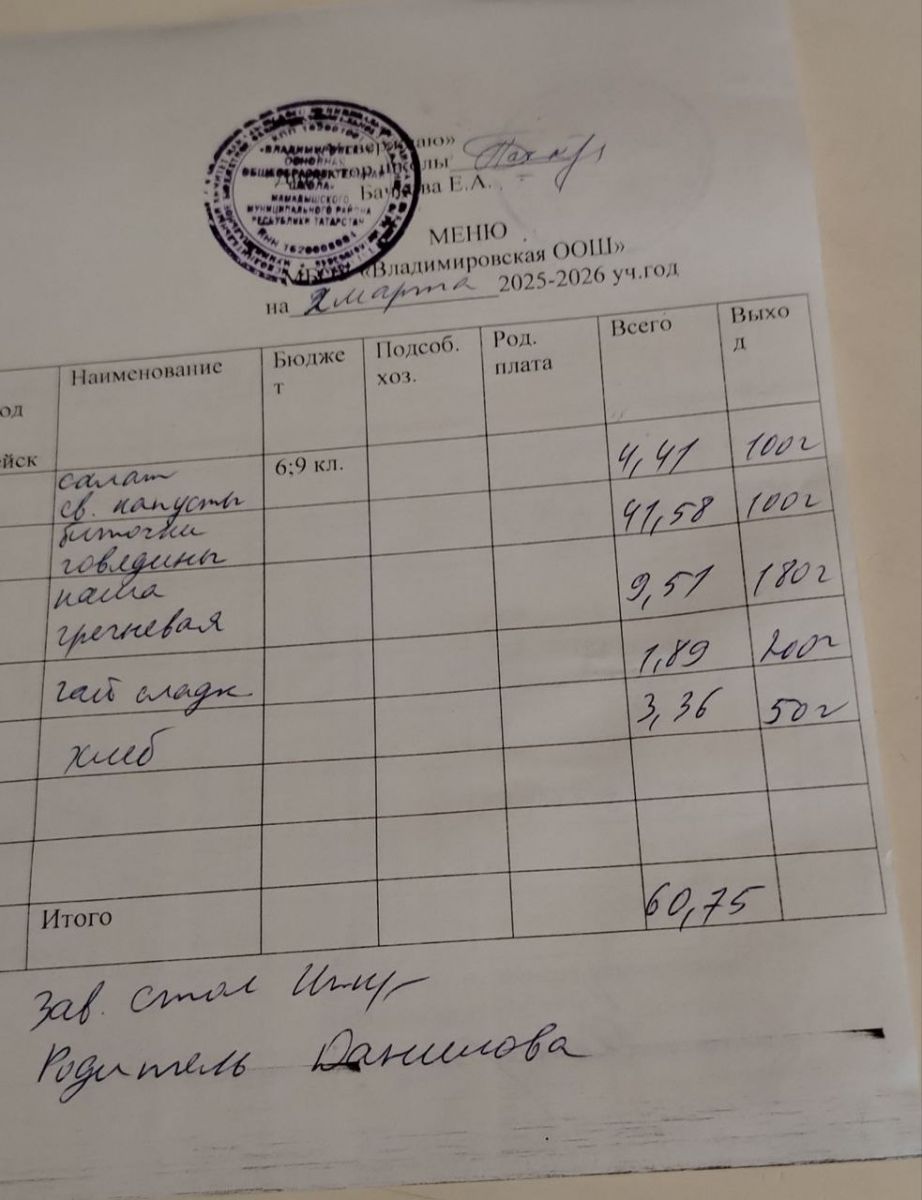 «ВЛАДИМИРОВСКАЯ
ОСНОВНАЯ
ОБЩЕОБРАЗОВАТЕЛЬНАЯ
ШКОЛА»
МАМАДЫШСКОГО
МУНИЦИПАЛЬНОГО РАЙОНА
РЕСПУБЛИКИ ТАТАРСТАН
«Утверждаю»
Директор школы
Е.А.
МЕНЮ
МБОУ «Владимировская ООШ»
на 2 марта 2025-2026 уч.год
од
ейск
Наименование
Бюдже
т
Подсоб.
хоз.
Род.
плата
Всего
Выхо
д
салат
св. капусты
6;9 кл.
4,41
100г
биточки
говядины
41,58
100г
каша
гречневая
9,51
180г
чай сладк
1,89
200г
хлеб
3,36
50г
Итого
60,75
Зав. стол
Родитель Данилова